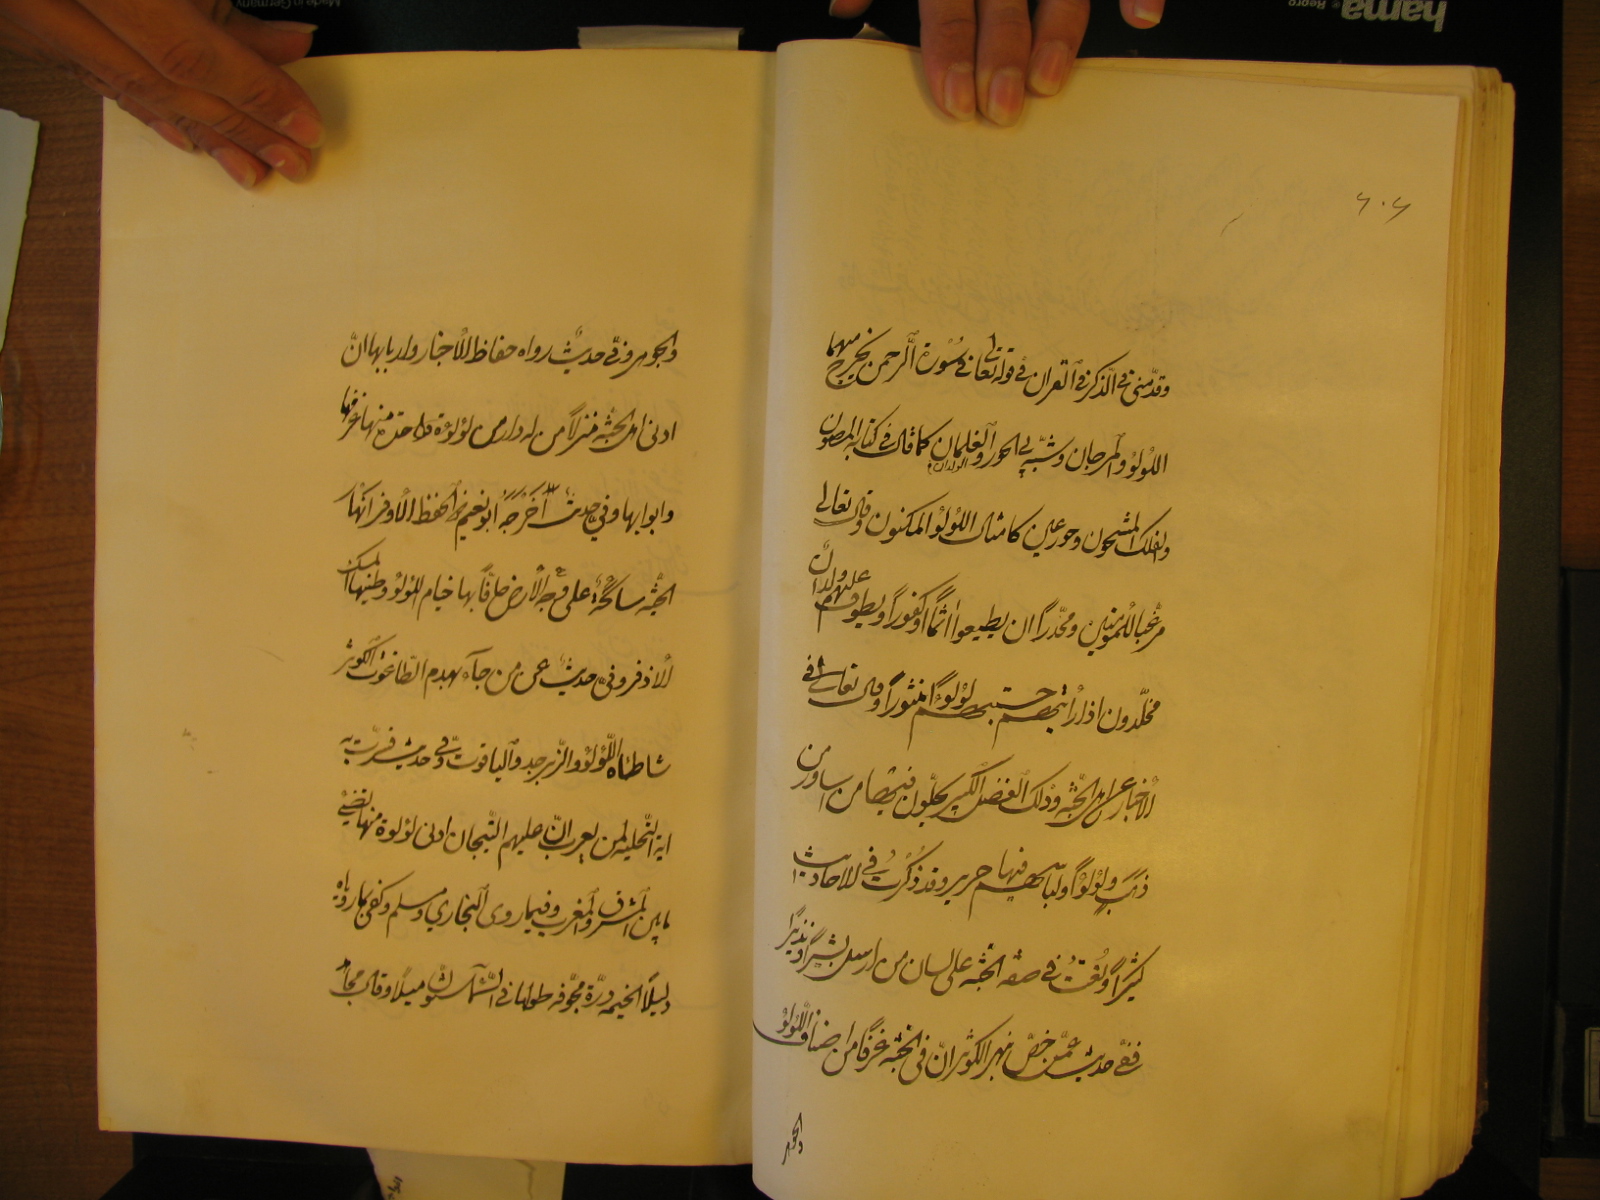 ٢٠٢
وقدمنى فى الذكر فى القران فى قوله تعالى فى سورة الرحمن يخرج منهما
اللولو والمرجان وشبه بى الحور والغلمان كما قال فى كتابه المصون
الولدان
والفلك المشحون وحور عين كامثال اللولو المكنون وقال تعالى
مرغبا للمومنين ومحذرا ان يطيعوا اثما او كفورا ويطوف عليهم ولدان
مخلدون اذا رايتهم حسبتهم لولوا منثورا وقال تعالى فى
الاخبار عن اهل الجنه وذلك الفضل الكبير يحلون فيها من اساور من
ذهب ولولوا ولباسهم فيها حرير وقد ذكرت فى الاحاديث
كثيرا ونعت فى صفة الجنه على لسان من ارسل بشيرا ونذيرا
ففى حديث عمن خص بنهر الكوثر ان فى الجنه غرفا من اصناف اللولو
والجوهر
والجوهر وفى حديث رواه حفاظ الاخبار واربابها ان
ادنى اهل الجنه منزلا من له دار من لولوة واحدة منها غرفها
وابوابها وفى حديث اخرجه ابو نعيم الحفظ الاوفر انهار
الجنه سائحة على وجه الارض حافاتها خيام اللولو وطينها المسك
الاذفر وفى حديث عن من جاء بهدم الطاغوت الكوثر
شاطئاه اللولو والزبرجد والياقوت وفى حديث
ان عليهم التيجان ادنى لولوة منها تضئ
ما بين المشرق والمغرب وفيما روى البخاري ومسلم وكفى بما روياه
دليلا الخيمه درة مجوفه طولها فى السماء ستون ميلا وقال مجاهد
hama
Repro
Made in Germany